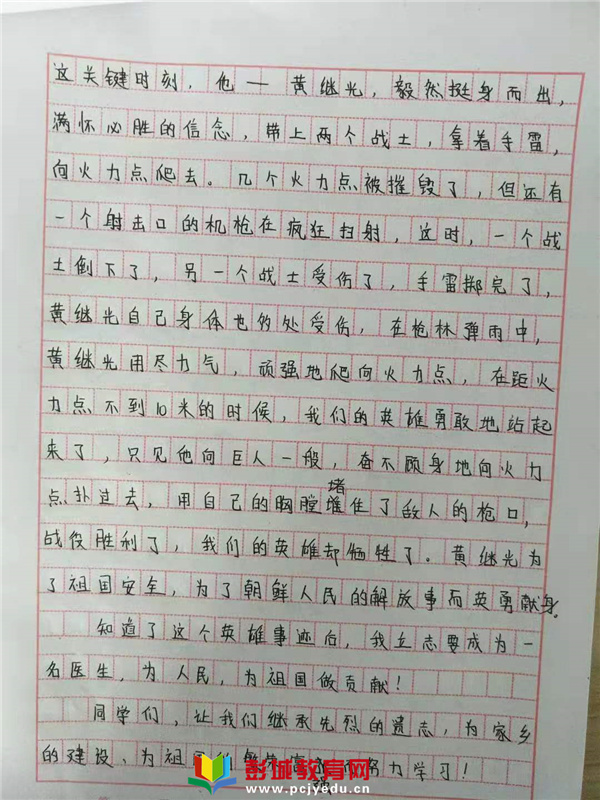 这关键时刻，他一黄继光，毅然挺身而出，
满怀必胜的信念，带上两个战士，拿着手雷，
向火力点爬去。几个火力点被摧毁了，但还有
一个射击口的机枪在疯狂扫射，这时，一个战
士倒下了，另一个战士受伤了，手雷掷完了，
黄继光自己身体也多处受伤，在枪林弹雨中，
黄继光用尽力气，顽强地爬向火力点，在距火
力点不到10米的时候，我们的英雄勇敢地站起
来了，只见他向巨人一般，奋不顾身地向火力
点扑过去，用自己的胸膛堵住了敌人的枪口，
战役胜利了，我们的英雄却牺牲了。黄继光为
了祖国安全，为了朝鲜人民的解放事而英勇献身。
知道了这个英雄事迹后，我立志要成为一
名医生，为人民，为祖国做贡献！
同学们，让我们继承先烈的遗志，为家乡
的建设、为祖 努力学习！
彭城教育网
www.pcjyedu.cn